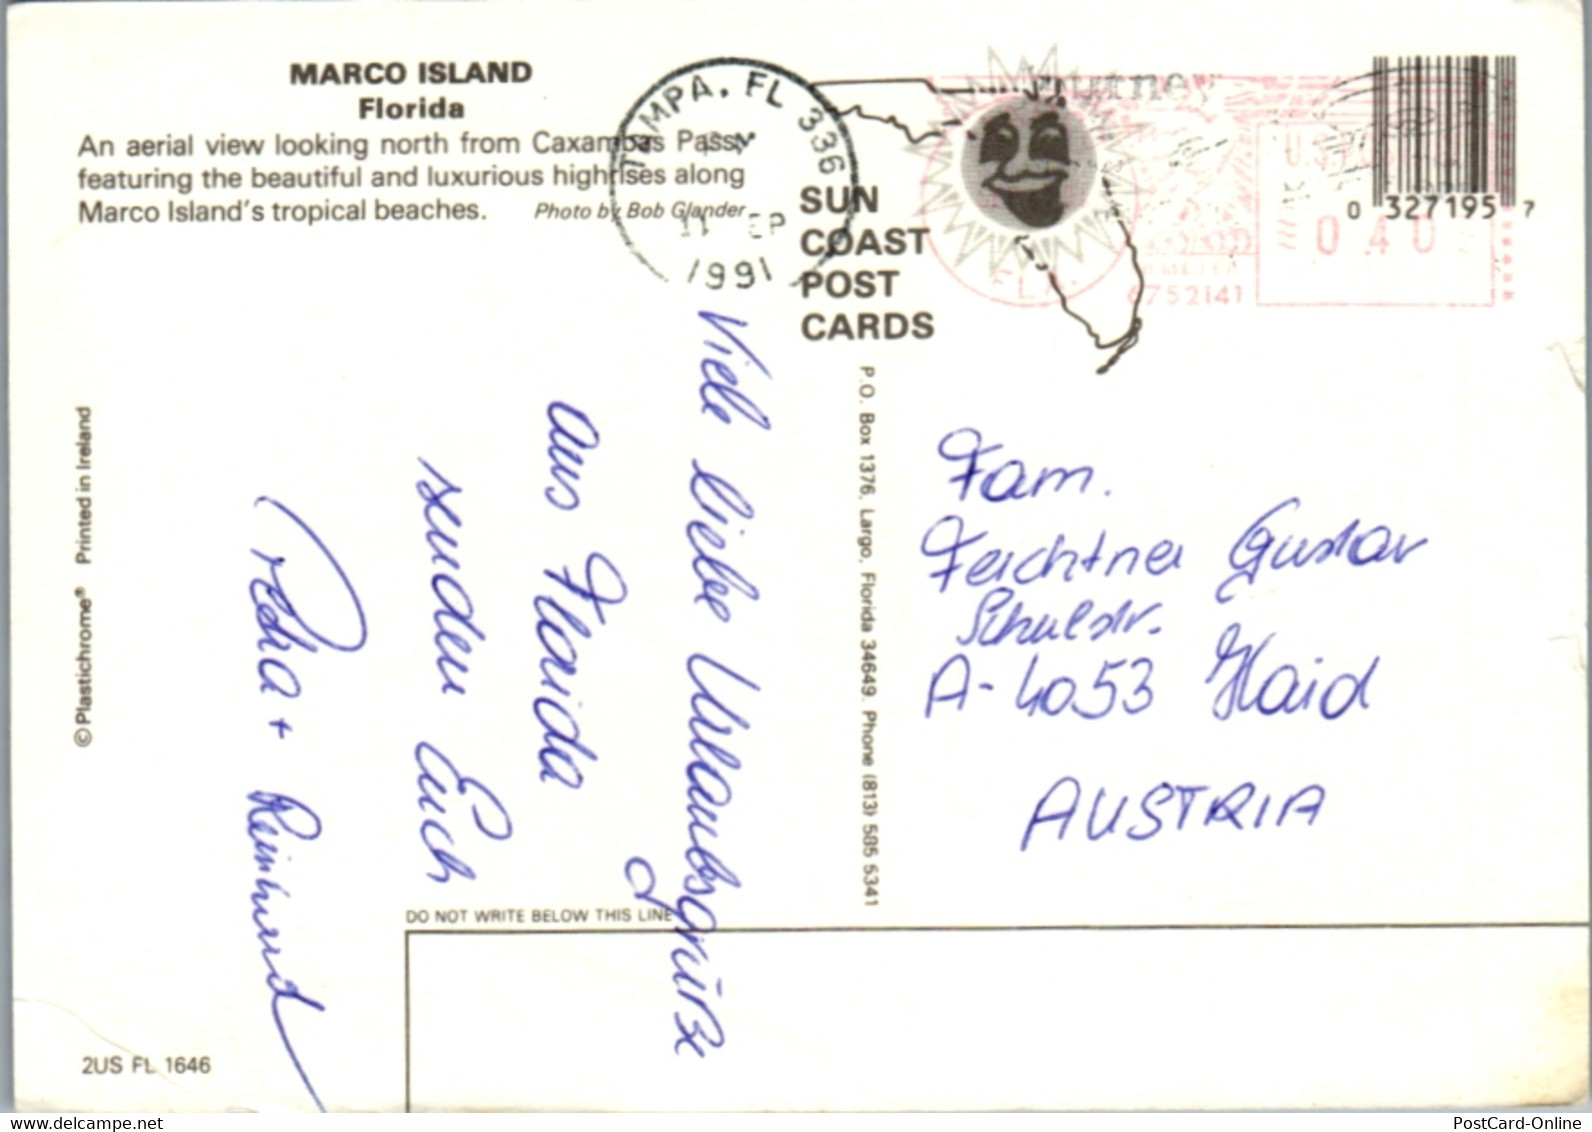 MARCO ISLAND
Florida
An aerial view looking north from Caxambas Pass,
featuring the beautiful and luxurious highrises along
Marco Island's tropical beaches. Photo by Bob Glander
TAMPA, FL 336
PM
11 SEP
1991
SUN
COAST
POST
CARDS
U.S.
0.40
FLA.
METER
6752141
0 327195 7
P.O. Box 1376, Largo, Florida 34649. Phone (813) 585 5341
Viele liebe Urlaubsgrüße
aus Florida
senden Euch
Petra + Reinhard
Fam.
Feichtner Gustav
Schulstr.
A-4053 Haid
AUSTRIA
© Plastichrome® Printed in Ireland
DO NOT WRITE BELOW THIS LINE
2US FL 1646
PostCard-Online